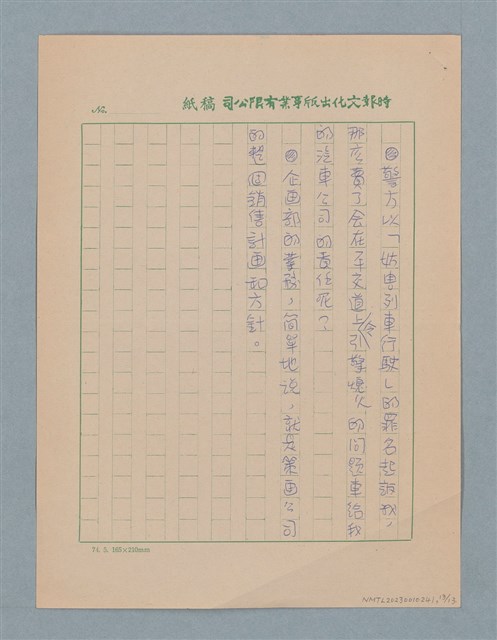 時報文化出版事業有限公司 稿紙
No.
◎警方以「妨害列車行駛」的罪名起訴我,
那应責了会在平交道上令引擎燒火的问题車给我
的汽車公司的责任呢?
◎企画部的業務,简单地说,就是策画公司
的整個銷售計画和方針。
74. 5. 185×210mm
NMTL20230010241. 13/13